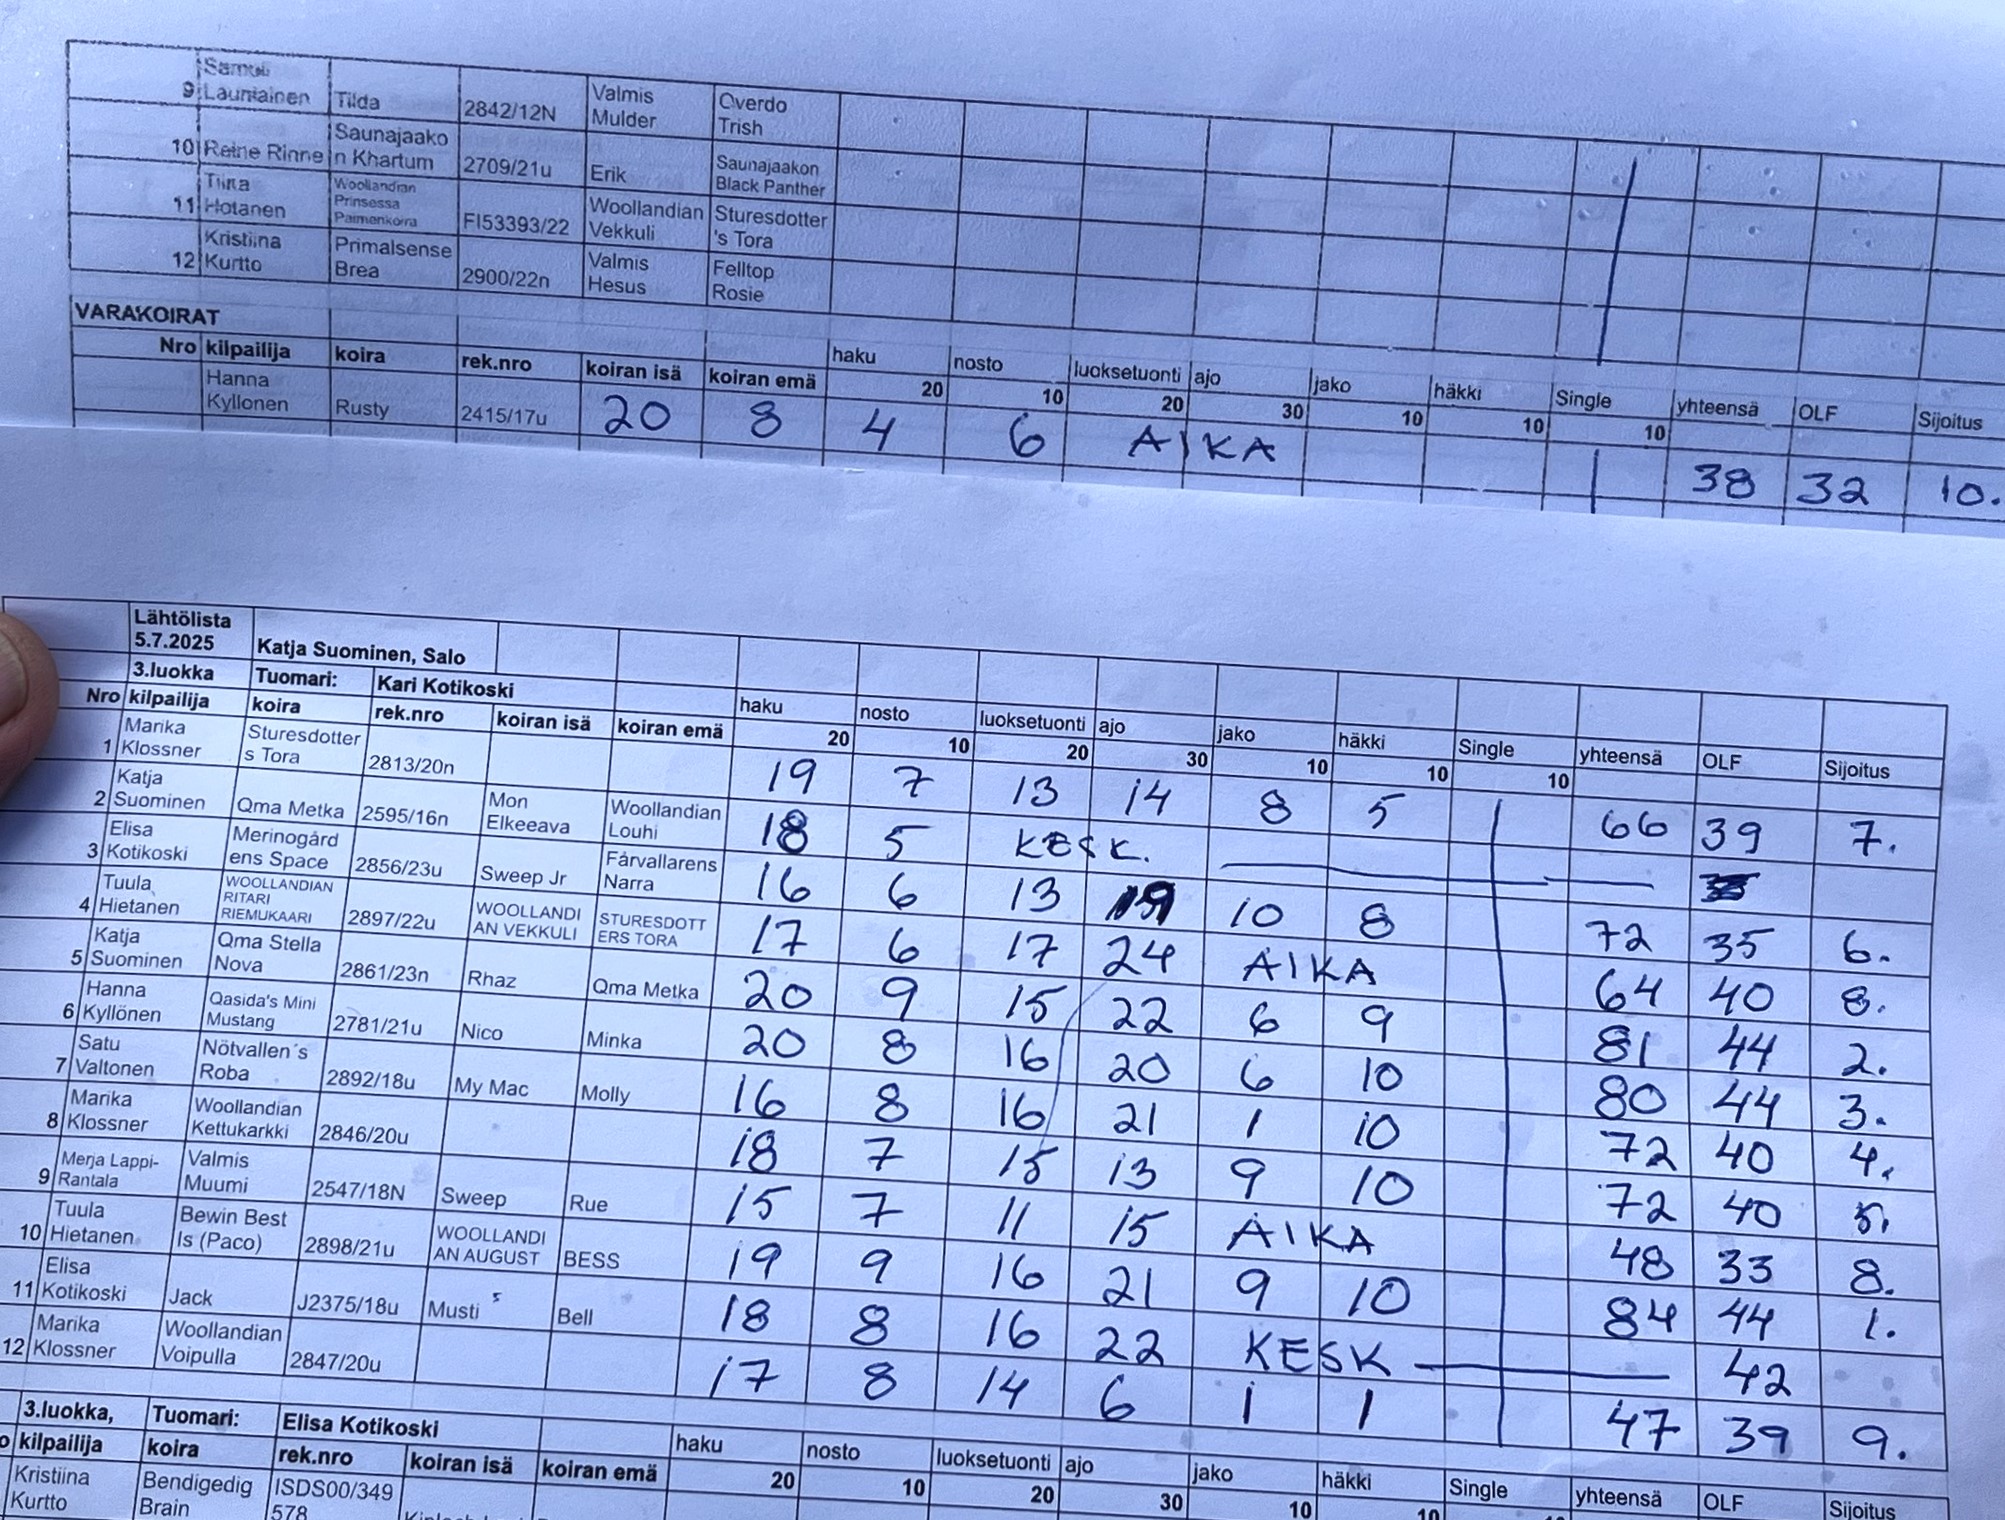 9 Samuli Launiainen Tilda 2842/12N Valmis Mulder Overdo Trish
10 Reine Rinne Saunajaako n Khartum 2709/21u Erik Saunajaakon Black Panther
11 Tiina Hotanen Woollandian Prinsessa Paimenkoira FI53393/22 Woollandian Vekkuli Sturesdotter 's Tora
12 Kristiina Kurtto Primalsense Brea 2900/22n Valmis Hesus Felltop Rosie
VARAKOIRAT
Nro kilpailija koira rek.nro koiran isä koiran emä haku 20 nosto 10 luoksetuonti 20 ajo 30 jako 10 häkki 10 Single 10 yhteensä OLF Sijoitus
Hanna Kyllonen Rusty 2415/17u 20 8 4 6 AIKA 38 32 10.
Lähtölista 5.7.2025 Katja Suominen, Salo
3.luokka Tuomari: Kari Kotikoski
Nro kilpailija koira rek.nro koiran isä koiran emä haku 20 nosto 10 luoksetuonti 20 ajo 30 jako 10 häkki 10 Single 10 yhteensä OLF Sijoitus
1 Marika Klossner Sturesdotter s Tora 2813/20n 19 7 13 14 8 5 66 39 7.
2 Katja Suominen Qma Metka 2595/16n Mon Elkeeava Woollandian Louhi 18 5 KESK.
3 Elisa Kotikoski Merinogård ens Space 2856/23u Sweep Jr Fårvallarens Narra 16 6 13 19 10 8 72 35 6.
4 Tuula Hietanen WOOLLANDIAN RITARI RIEMUKAARI 2897/22u WOOLLANDI AN VEKKULI STURESDOTT ERS TORA 17 6 17 24 AIKA 64 40 8.
5 Katja Suominen Qma Stella Nova 2861/23n Rhaz Qma Metka 20 9 15 22 6 9 81 44 2.
6 Hanna Kyllönen Qasida's Mini Mustang 2781/21u Nico Minka 20 8 16 20 6 10 80 44 3.
7 Satu Valtonen Nötvallen´s Roba 2892/18u My Mac Molly 16 8 16 21 1 10 72 40 4.
8 Marika Klossner Woollandian Kettukarkki 2846/20u 18 7 15 13 9 10 72 40 5.
9 Merja Lappi-Rantala Valmis Muumi 2547/18N Sweep Rue 15 7 11 15 AIKA 48 33 8.
10 Tuula Hietanen Bewin Best Is (Paco) 2898/21u WOOLLANDI AN AUGUST BESS 19 9 16 21 9 10 84 44 1.
11 Elisa Kotikoski Jack J2375/18u Musti Bell 18 8 16 22 KESK 42
12 Marika Klossner Woollandian Voipulla 2847/20u 17 8 14 6 1 1 47 39 9.
3.luokka, Tuomari: Elisa Kotikoski
o kilpailija koira rek.nro koiran isä koiran emä haku 20 nosto 10 luoksetuonti 20 ajo 30 jako 10 häkki 10 Single yhteensä OLF Sijoitus
Kristiina Kurtto Bendigedig Brain ISDS00/349 578